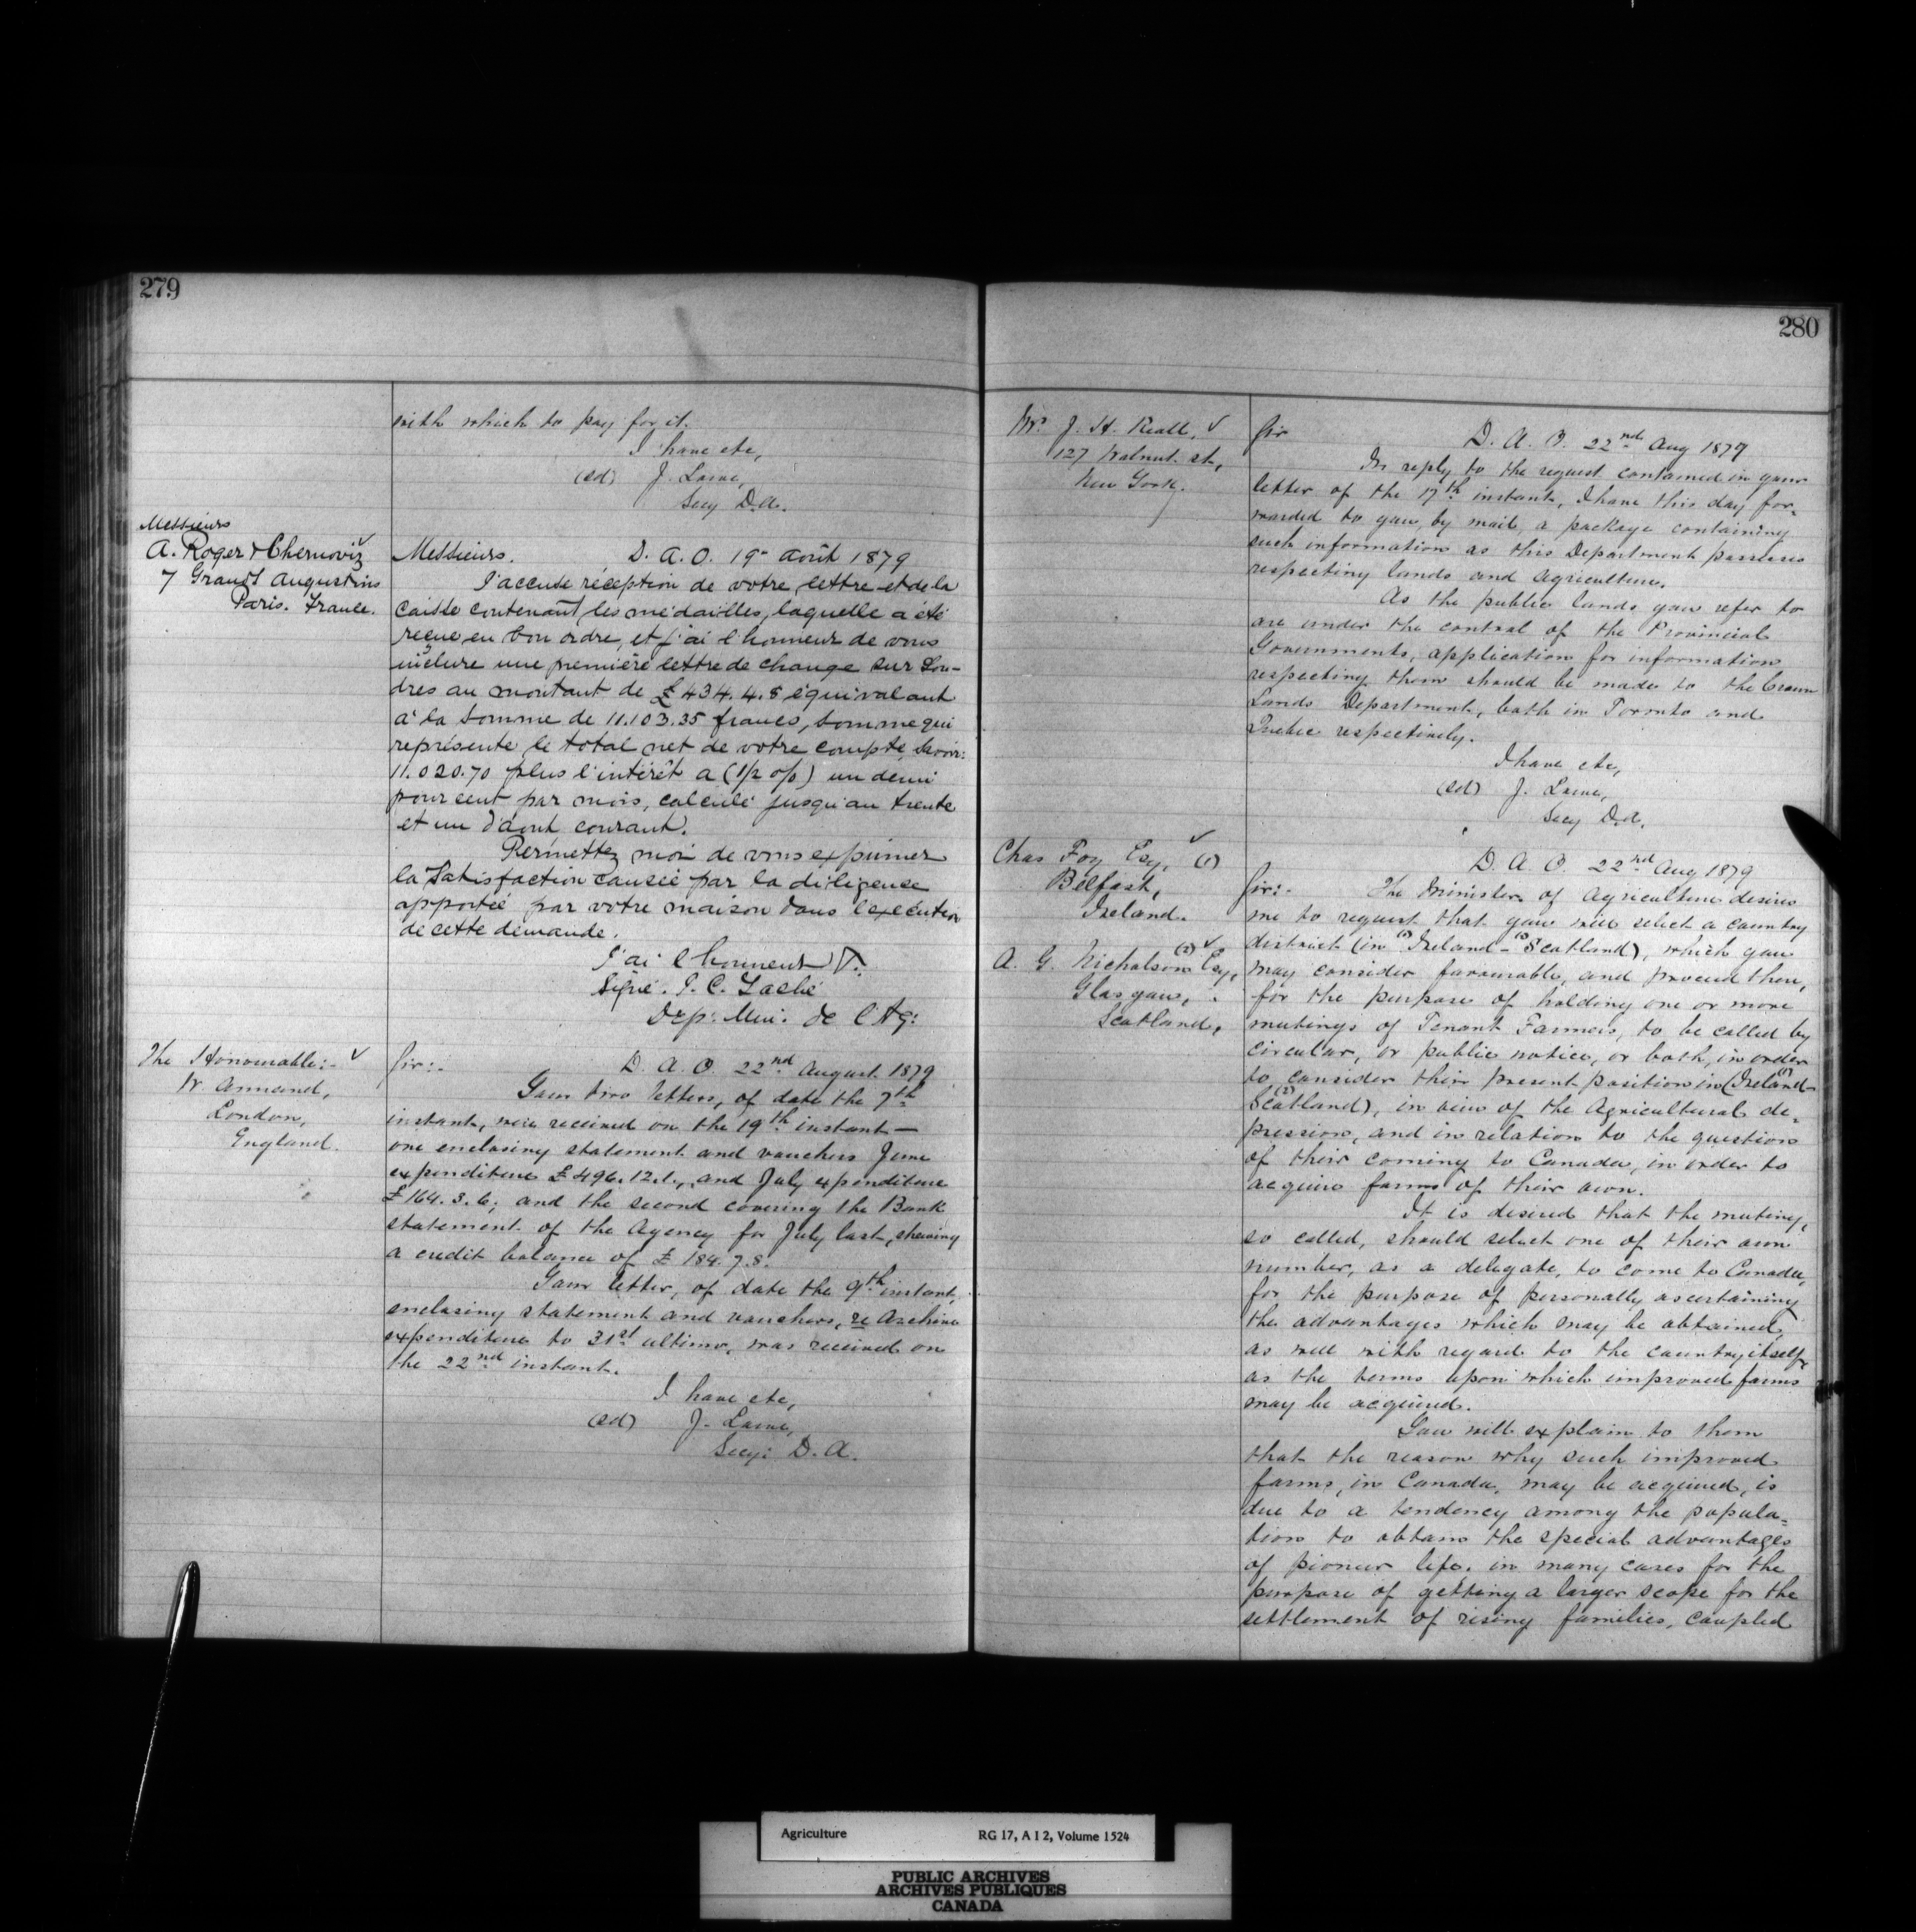 279
with which to pay for it.
I have etc,
(sd) J. Lowe,
Secy D.A.
Messieurs
A. Roger & Chernoviz
7 Grands Augustins
Paris. France.
Messieurs. D. A. O. 19 août 1879
J'accuse réception de votre lettre et de la
caisse contenant les médailles, laquelle a été
reçue en bon ordre, et j'ai l'honneur de vous
inclure une première lettre de change sur Lon-
dres au montant de £434.4.8 équivalant
à la somme de 11.103.35 francs, somme qui
représente le total net de votre compte, savoir:
11.020.70 plus l'intérêt a (1/2 o/o) un demi
pour cent par mois, calculé jusqu'au trente
et un d'août courant.
Permettez moi de vous exprimer
la satisfaction causée par la diligence
apportée par votre maison dans l'exécution
de cette demande.
J'ai l'honneur
Signé. J. C. Taché
Dep: Min: de l'Ag:
The Honourable:-
W. Annand,
London,
England.
Sir:- D. A. O. 22nd August 1879
Your two letters, of date the 7th
instant, were received on the 19th instant —
one enclosing statement and vouchers June
expenditure £496.12.1., and July expenditure
£164.3.6; and the second covering the Bank
statement of the Agency for July last, shewing
a credit balance of £184.7.8.
Your letter, of date the 9th instant,
enclosing statement and vouchers, re Archive
expenditure to 31st ultimo, was received on
the 22nd instant.
I have etc,
(sd) J. Lowe,
Secy: D. A.
280
Mr. J. H. Reall,
127 Walnut st,
New York.
Sir
D. A. O. 22nd Aug 1879
In reply to the request contained in your
letter of the 17th instant, I have this day for-
warded to you, by mail, a package containing
such information as this Department possesses
respecting lands and agriculture.
As the public lands you refer to
are under the control of the Provincial
Governments, application for information
respecting them should be made to the Crown
Lands Department, both in Toronto and
Quebec respectively.
I have etc,
(sd) J. Lowe,
Secy D.A.
Chas Foy Esq, (1)
Belfast,
Ireland.
A. G. Nicholson (2) Esq,
Glasgow,
Scotland,
D. A. O. 22nd Aug 1879
Sir:- The Minister of Agriculture desires
me to request that you will select a country
district (in (1) Ireland - (2) Scotland), which you
may consider favourable, and proceed there,
for the purpose of holding one or more
meetings of Tenant Farmers, to be called by
circular, or public notice, or both, in order
to consider their present position in (Ireland (1) -
Scotland (2)), in view of the Agricultural de-
pression, and in relation to the question
of their coming to Canada, in order to
acquire farms of their own.
It is desired that the meeting,
so called, should select one of their own
number, as a delegate, to come to Canada,
for the purpose of personally ascertaining
the advantages which may be obtained,
as well with regard to the country itself,
as the terms upon which improved farms
may be acquired.
You will explain to them
that the reason why such improved
farms, in Canada, may be acquired, is
due to a tendency among the popula-
tion to obtain the special advantages
of pioneer life, in many cases for the
purpose of getting a larger scope for the
settlement of rising families, coupled
Agriculture RG 17, A I 2, Volume 1524
PUBLIC ARCHIVES
ARCHIVES PUBLIQUES
CANADA